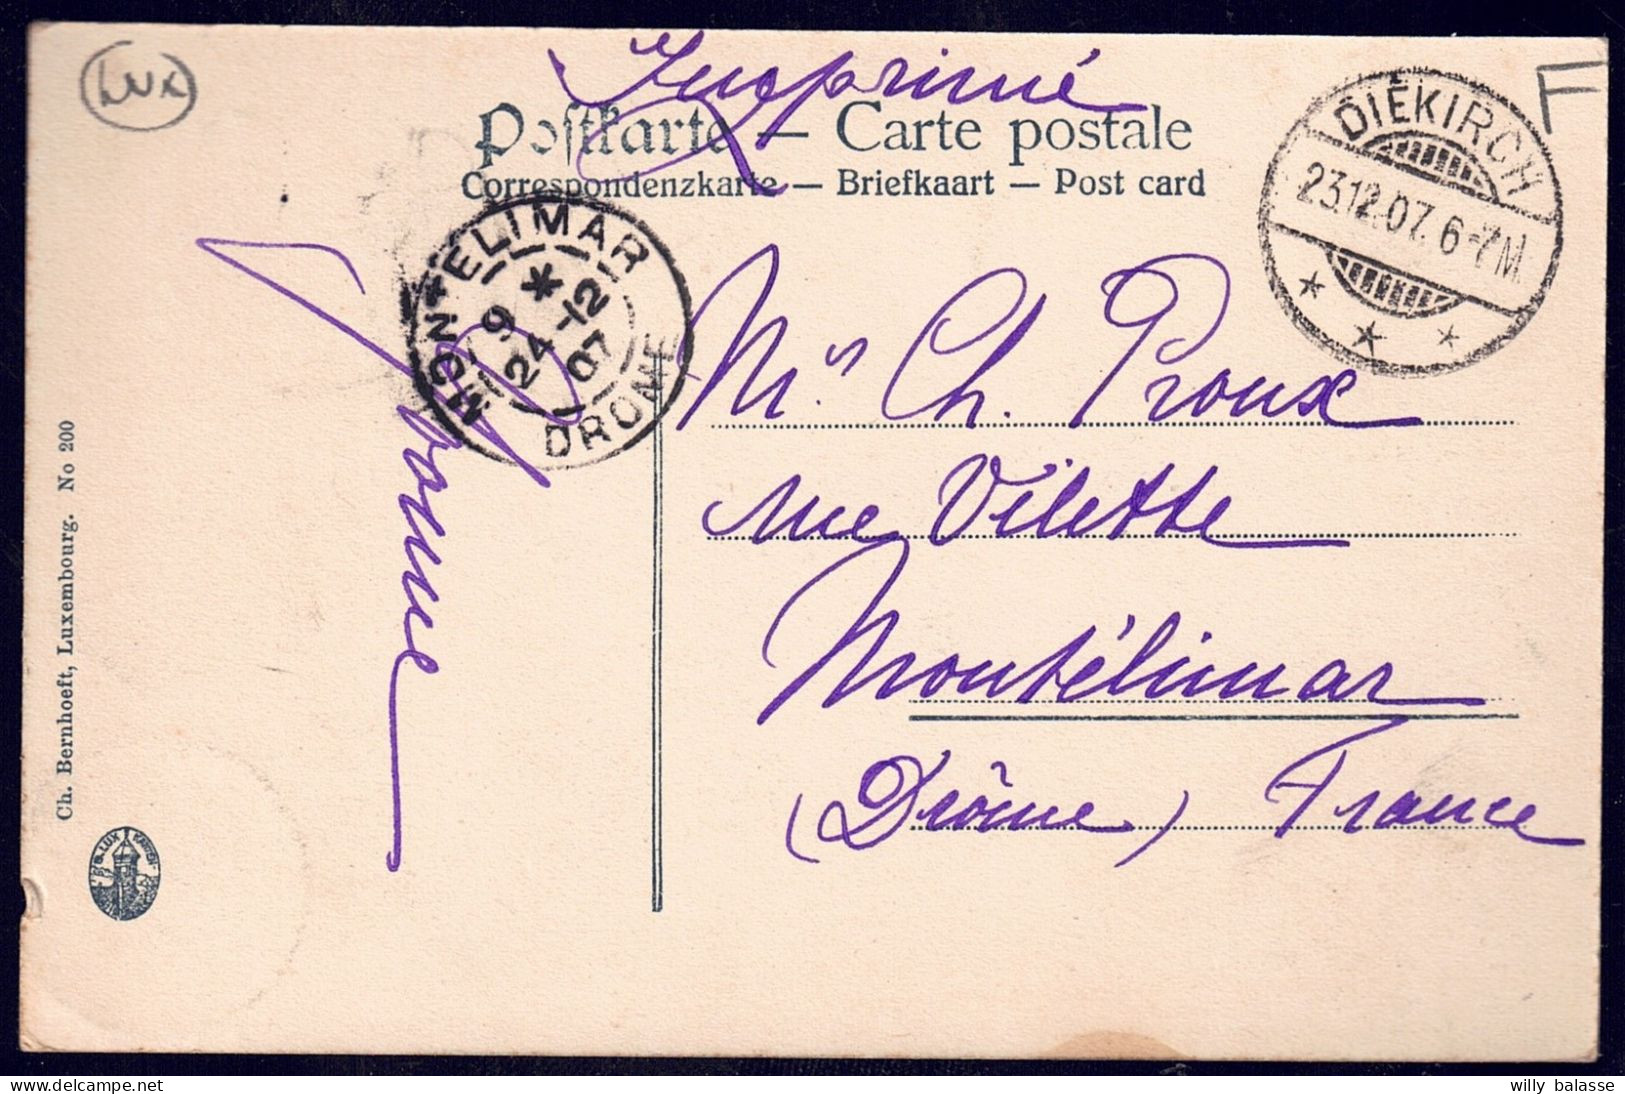 Lux
F
Imprimé
Postkarte — Carte postale
Correspondenzkarte — Briefkaart — Post card
DIEKIRCH
23.12.07. 6-7 M.
MONTELIMAR
9
24 -12
07
DROME
Yvonne
Mr. Ch. Proux
rue Vilette
Montélimar
(Drôme) France
Ch. Bernhoeft, Luxembourg. No 200
delcampe.net
willy balasse